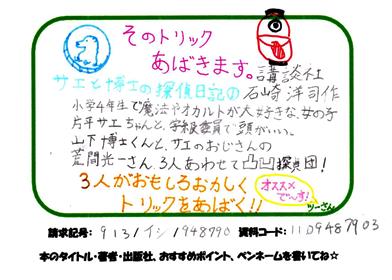 そのトリック
あばきます。講談社
サエと博士の探偵日記の 石崎洋司作
小学4年生で魔法やオカルトが大好きな、女の子
片平サエちゃんと、学級委員で頭がいい。
山下博士くんと、サエのおじさんの
荒間光一さん、3人あわせて凸凹探偵団！
3人がおもしろおかしく
トリックをあばく!!
オススメでーす!
ツーさん
請求記号： 913/イシ/948790 資料コード：1109487903
本のタイトル・著者・出版社、おすすめポイント、ペンネームを書いてね☆